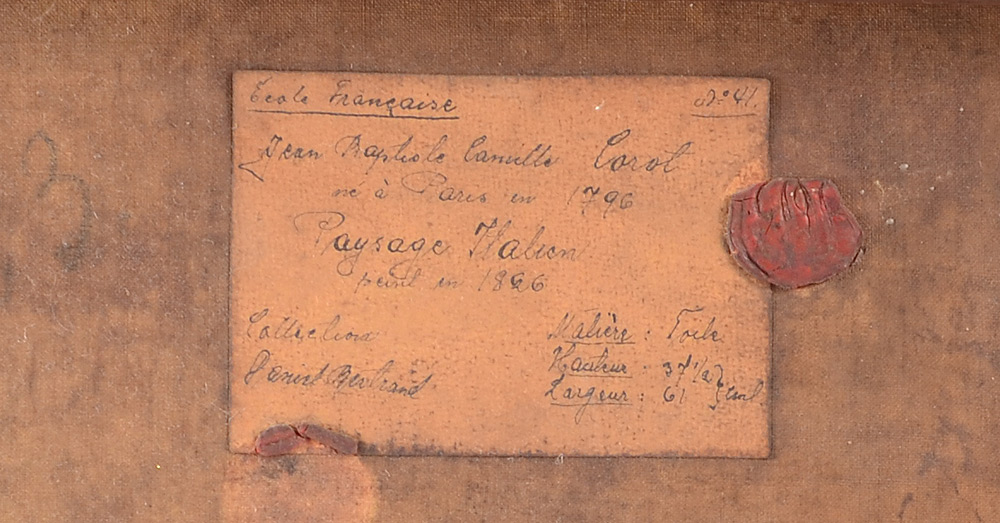 École Française
No 41.
Jean Baptiste Camille Corot
né à Paris en 1796
Paysage Italien
peint en 1826
Collection
Bertrand
Matière : Toile
Hauteur : 37 1/2
Largeur : 61